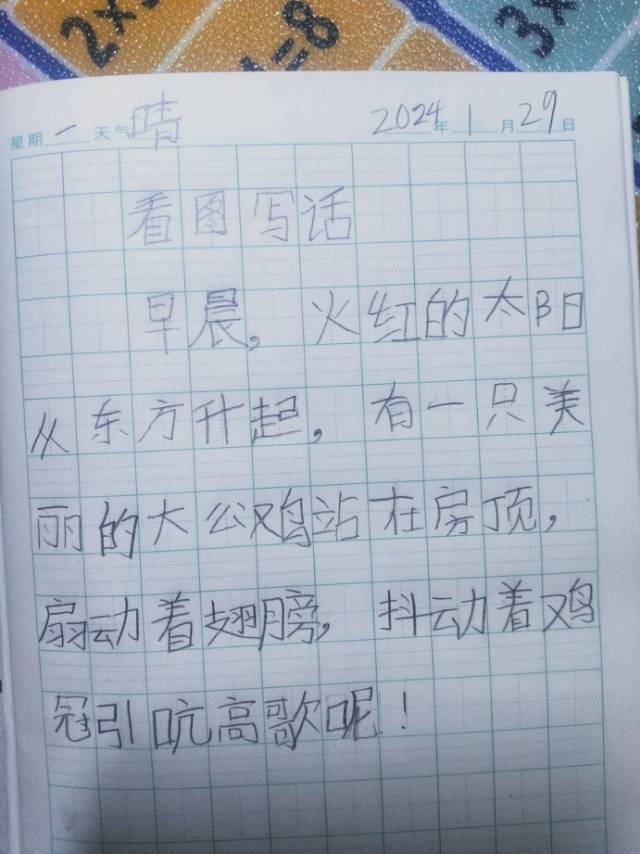 2×5
4=8
3×
星期一 天气晴 2024年1月29日
看图写话
早晨，火红的太阳
从东方升起，有一只美
丽的大公鸡站在房顶，
扇动着翅膀，抖动着鸡
冠引吭高歌呢！